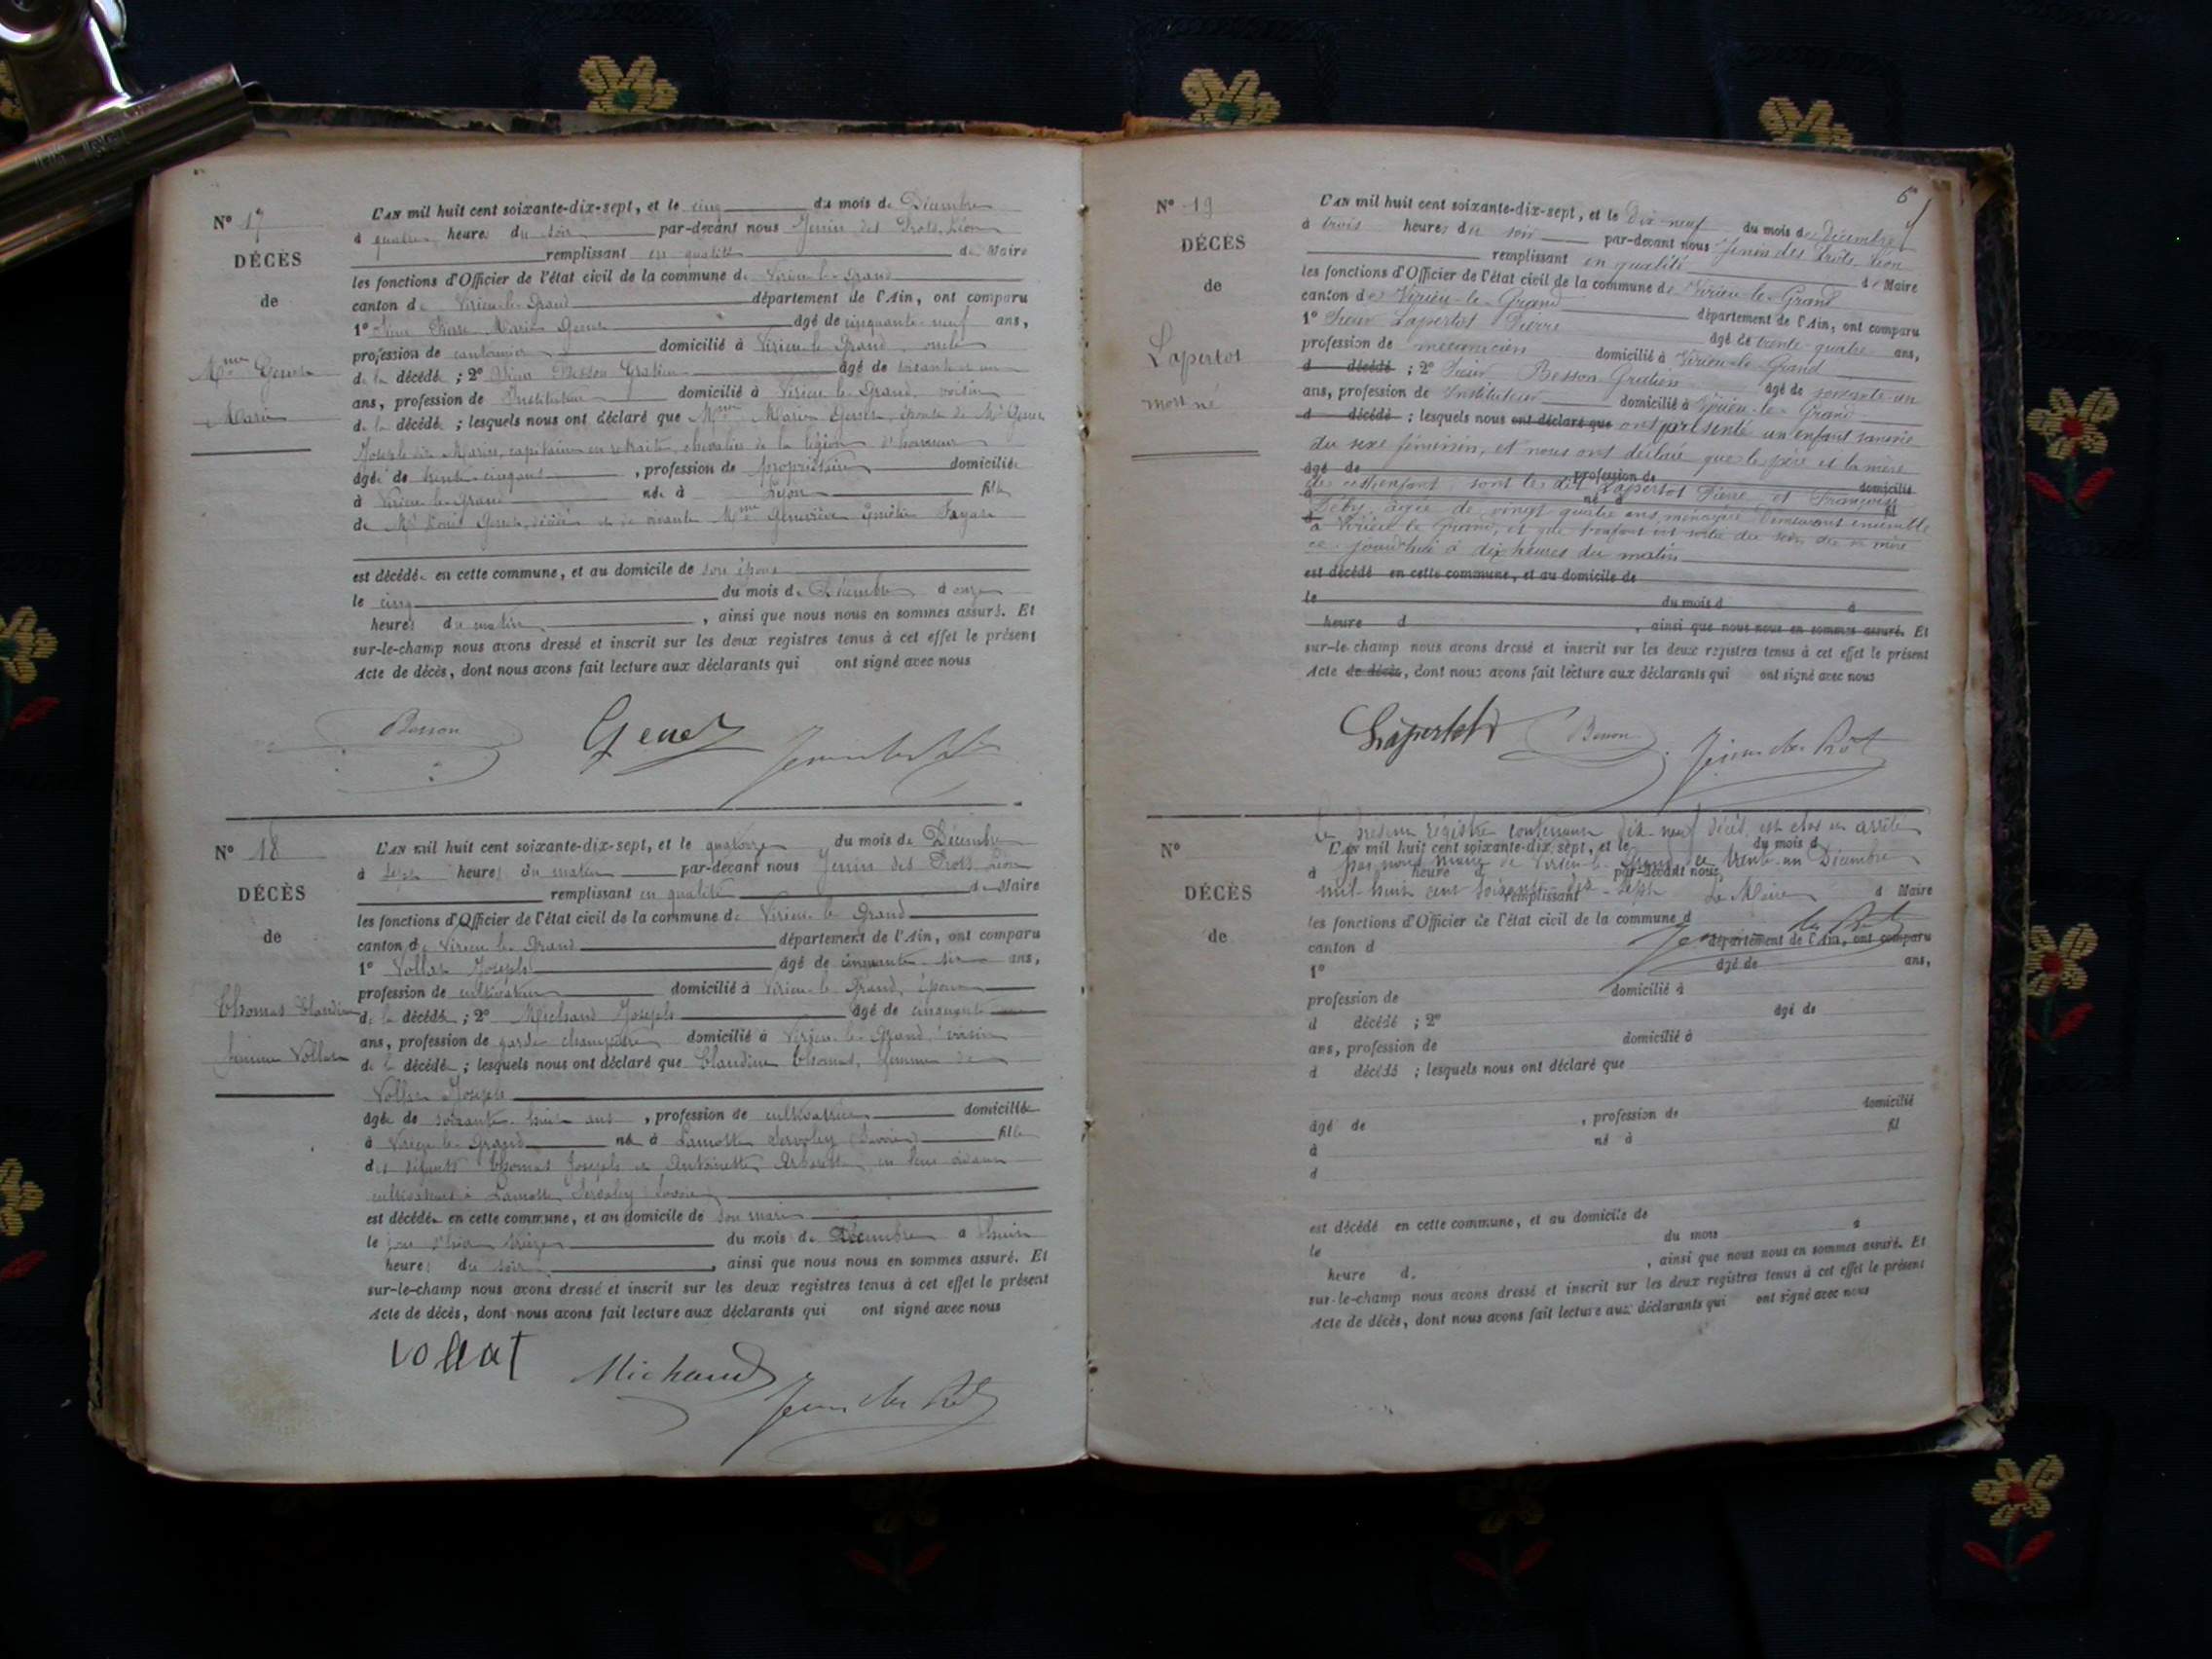 N° 17
DÉCÈS
de
Mme Genet
Marie
L'AN mil huit cent soixante-dix-sept, et le cinq du mois de Décembre
à quatre heures du soir par-devant nous Jenin des Prots, Léon
remplissant en qualité de Maire
les fonctions d'Officier de l'état civil de la commune de Virieu-le-Grand
canton de Virieu-le-Grand département de l'Ain, ont comparu
1° Pierre Marie Genet âgé de cinquante-neuf ans,
profession de cantonnier domicilié à Virieu-le-Grand, oncle
de la décédée ; 2° Besson Gratien âgé de soixante et un
ans, profession de Instituteur domicilié à Virieu-le-Grand, voisin
de la décédée ; lesquels nous ont déclaré que Mme Marie Genet, épouse de Mr Genet
Joseph dit Marius, capitaine en retraite, chevalier de la légion d'honneur
âgée de trente cinq ans, profession de propriétaire domiciliée
à Virieu-le-Grand née à Lyon fille
de Mr Louis Genet, décédé et de vivante Mme Geneviève Fayard
est décédée en cette commune, et au domicile de son époux
le cinq du mois de Décembre à onze
heures du matin, ainsi que nous nous en sommes assuré. Et
sur-le-champ nous avons dressé et inscrit sur les deux registres tenus à cet effet le présent
Acte de décès, dont nous avons fait lecture aux déclarants qui ont signé avec nous
Besson Genet Jenin des Prots
N° 18
DÉCÈS
de
Thomas Claudine
femme Vollat
L'AN mil huit cent soixante-dix-sept, et le quatorze du mois de Décembre
à sept heures du matin par-devant nous Jenin des Prots, Léon
remplissant en qualité de Maire
les fonctions d'Officier de l'état civil de la commune de Virieu-le-Grand
canton de Virieu-le-Grand département de l'Ain, ont comparu
1° Vollat Joseph âgé de cinquante-six ans,
profession de cultivateur domicilié à Virieu-le-Grand, époux
de la décédée ; 2° Michaud Joseph âgé de cinquante
ans, profession de garde champêtre domicilié à Virieu-le-Grand, voisin
de la décédée ; lesquels nous ont déclaré que Claudine Thomas, femme de
Vollat Joseph
âgée de soixante-huit ans, profession de cultivatrice domiciliée
à Virieu-le-Grand née à Lamotte Servolex (Savoie) fille
des défunts Thomas Joseph et Antoinette en leur vivant
cultivateurs à Lamotte Servolex Savoie
est décédée en cette commune, et au domicile de son mari
le jour d'hier treize du mois de Décembre à huit
heures du soir, ainsi que nous nous en sommes assuré. Et
sur-le-champ nous avons dressé et inscrit sur les deux registres tenus à cet effet le présent
Acte de décès, dont nous avons fait lecture aux déclarants qui ont signé avec nous
Vollat Michaud Jenin des Prots
N° 19
DÉCÈS
de
Lapertot
mort né
L'AN mil huit cent soixante-dix-sept, et le dix-neuf du mois de décembre
à trois heures du soir par-devant nous Jenin des Prots, Léon
remplissant en qualité de Maire
les fonctions d'Officier de l'état civil de la commune de Virieu-le-Grand
canton de Virieu-le-Grand département de l'Ain, ont comparu
1° Sieur Lapertot Pierre âgé de trente-quatre ans,
profession de mécanicien domicilié à Virieu-le-Grand
d décédé ; 2° Sieur Besson Gratien âgé de soixante-un
ans, profession de Instituteur domicilié à Virieu-le-Grand
d décédé ; lesquels nous ont déclaré que ont présenté un enfant sans vie
du sexe féminin, et nous ont déclaré que le père et la mère
âgé de profession de domicilié
de cet enfant, sont les dit Lapertot Pierre, et Françoise
à né à fil
âgée de vingt quatre ans, ménagère demeurant ensemble
à Virieu-le-Grand, et que l'enfant est sorti du sein de sa mère
ce jourd'hui à dix heures du matin
est décédé en cette commune, et au domicile de
le du mois d à
heure d , ainsi que nous nous en sommes assuré. Et
sur-le-champ nous avons dressé et inscrit sur les deux registres tenus à cet effet le présent
Acte de décès, dont nous avons fait lecture aux déclarants qui ont signé avec nous
Lapertot Besson Jenin des Prots
Le présent registre contenant dix neuf décès, est clos et arrêté
N°
L'AN mil huit cent soixante-dix-sept, et le du mois d
par nous Maire de Virieu-le-Grand, ce trente-un Décembre
à heure d par-devant nous
mil huit cent soixante dix-sept Le Maire
DÉCÈS
remplissant d Maire
Jenin des Prots
les fonctions d'Officier de l'état civil de la commune d
de
canton d département de l'Ain, ont comparu
1° âgé de ans,
profession de domicilié à
d décédé ; 2° âgé de
ans, profession de domicilié à
d décédé ; lesquels nous ont déclaré que
âgé de , profession de domicilié
à né à fil
d
est décédé en cette commune, et au domicile de
le du mois à
heure d. , ainsi que nous nous en sommes assuré. Et
sur-le-champ nous avons dressé et inscrit sur les deux registres tenus à cet effet le présent
Acte de décès, dont nous avons fait lecture aux déclarants qui ont signé avec nous